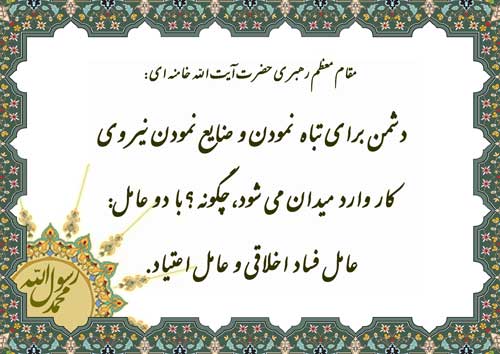 مقام معظم رهبری حضرت آیت الله خامنه ای:
دشمن برای تباه نمودن و ضایع نمودن نیروی
کار وارد میدان می شود، چگونه؟ با دو عامل:
عامل فساد اخلاقی و عامل اعتیاد.
محمد رسول الله